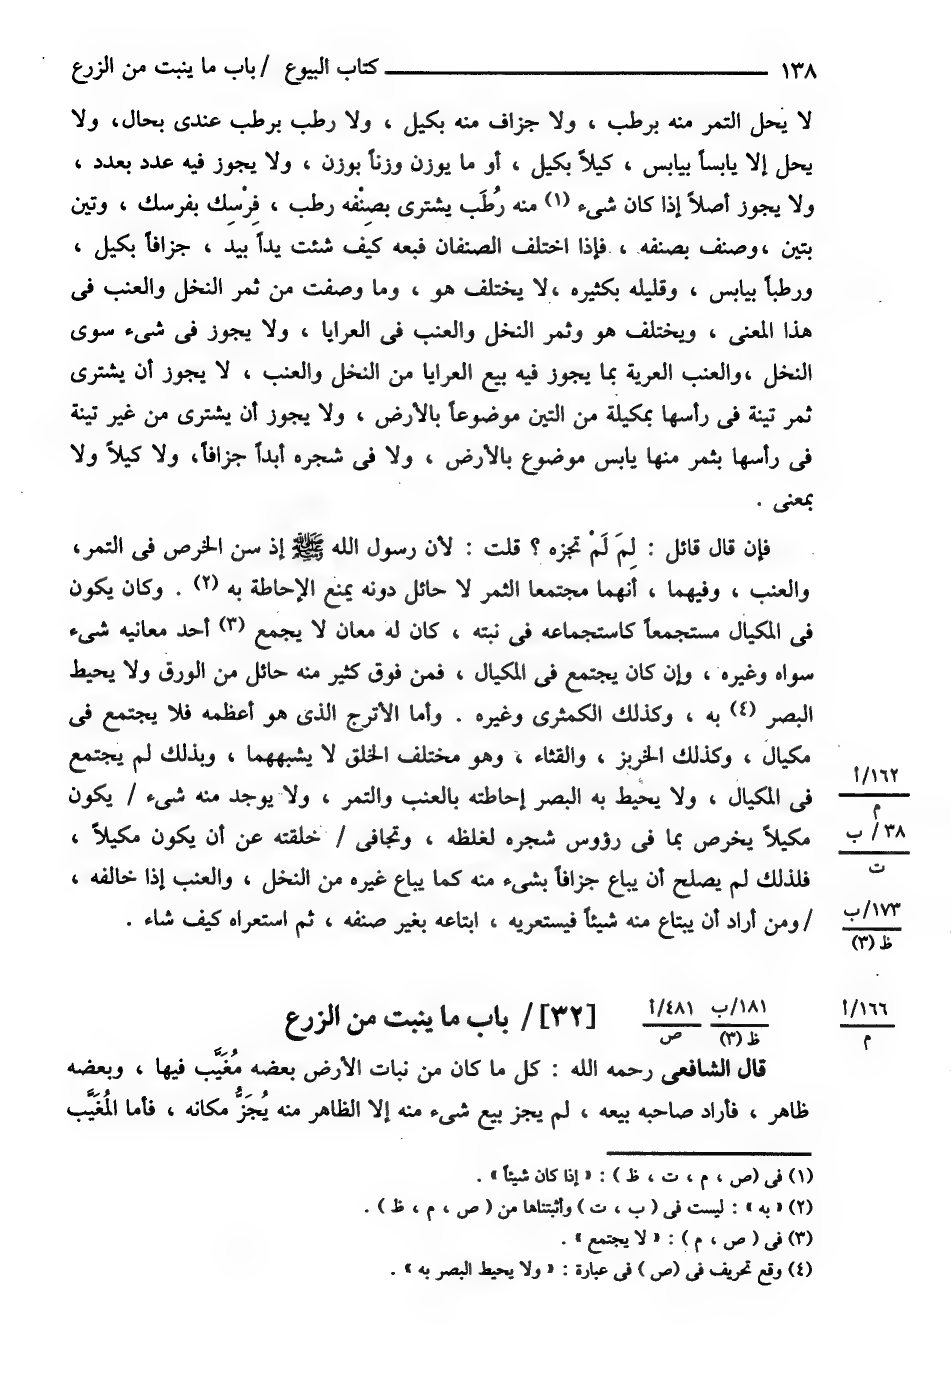 ١٣٨ ــــــ كتاب البيوع / باب ما ينبت من الزرع
لا يحل التمر منه برطب ، ولا جزاف منه بكيل ، ولا رطب برطب عندى بحال، ولا
يحل إلا يابساً بيابس ، كيلاً بكيل ، أو ما يوزن وزناً بوزن ، ولا يجوز فيه عدد بعدد ،
ولا يجوز أصلاً إذا كان شىء (١) منه رُطَب يشترى بصِنْفه رطب ، فِرْسِك بفرسك ، وتين
بتين ،وصنف بصنفه ، فإذا اختلف الصنفان فبعه كيف شئت يداً بيد ، جزافاً بكيل ،
ورطباً بيابس ، وقليله بكثيره ،لا يختلف هو ، وما وصفت من ثمر النخل والعنب فى
هذا المعنى ، ويختلف هو وثمر النخل والعنب فى العرايا ، ولا يجوز فى شىء سوى
النخل ،والعنب العرية بما يجوز فيه بيع العرايا من النخل والعنب ، لا يجوز أن يشترى
ثمر تينة فى رأسها بمكيلة من التين موضوعاً بالأرض ، ولا يجوز أن يشترى من غير تينة
فى رأسها بثمر منها يابس موضوع بالأرض ، ولا فى شجره أبداً جزافاً، ولا كيلاً ولا
بمعنى .
فإن قال قائل : لِمَ لَمْ تجزه ؟ قلت : لأن رسول الله ﷺ إذ سن الخرص فى التمر،
والعنب ، وفيهما ، أنهما مجتمعا الثمر لا حائل دونه يمنع الإحاطة به (٢) . وكان يكون
فى المكيال مستجمعاً كاستجماعه فى نبته ، كان له معان لا يجمع (٣) أحد معانيه شىء
سواه وغيره ، وإن كان يجتمع فى المكيال ، فمن فوق كثير منه حائل من الورق ولا يحيط
البصر (٤) به ، وكذلك الكمثرى وغيره . وأما الأترج الذى هو أعظمه فلا يجتمع فى
مكيال ، وكذلك الخربز ، والقثاء ، وهو مختلف الخلق لا يشبههما ، وبذلك لم يجتمع
فى المكيال ، ولا يحيط به البصر إحاطته بالعنب والتمر ، ولا يوجد منه شىء / يكون
مكيلاً يخرص بما فى رؤوس شجره لغلظه ، وتجافى / خلقته عن أن يكون مكيلاً ،
فلذلك لم يصلح أن يباع جزافاً بشىء منه كما يباع غيره من النخل ، والعنب إذا خالفه ،
/ ومن أراد أن يبتاع منه شيئاً فيستعريه ، ابتاعه بغير صنفه ، ثم استعراه كيف شاء .
١٦٢/أ
م
٣٨/ ب
ت
١٧٣/ب
ظ (٣)
١٦٦/أ
م
١٨١/ب
ظ (٣)
٤٨١/أ
ص
[٣٢] / باب ما ينبت من الزرع
قال الشافعى رحمه الله : كل ما كان من نبات الأرض بعضه مُغَيَّب فيها ، وبعضه
ظاهر ، فأراد صاحبه بيعه ، لم يجز بيع شىء منه إلا الظاهر منه يُجَزُّ مكانه ، فأما المُغَيَّب
(١) فى (ص ، م ، ت ، ظ ) : « إذا كان شيئاً » .
(٢) « به » : ليست فى ( ب ، ت ) وأثبتناها من ( ص ، م ، ظ ) .
(٣) فى ( ص ، م ) : « لا يجتمع » .
(٤) وقع تحريف فى (ص ) فى عبارة : « ولا يحيط البصر به » .